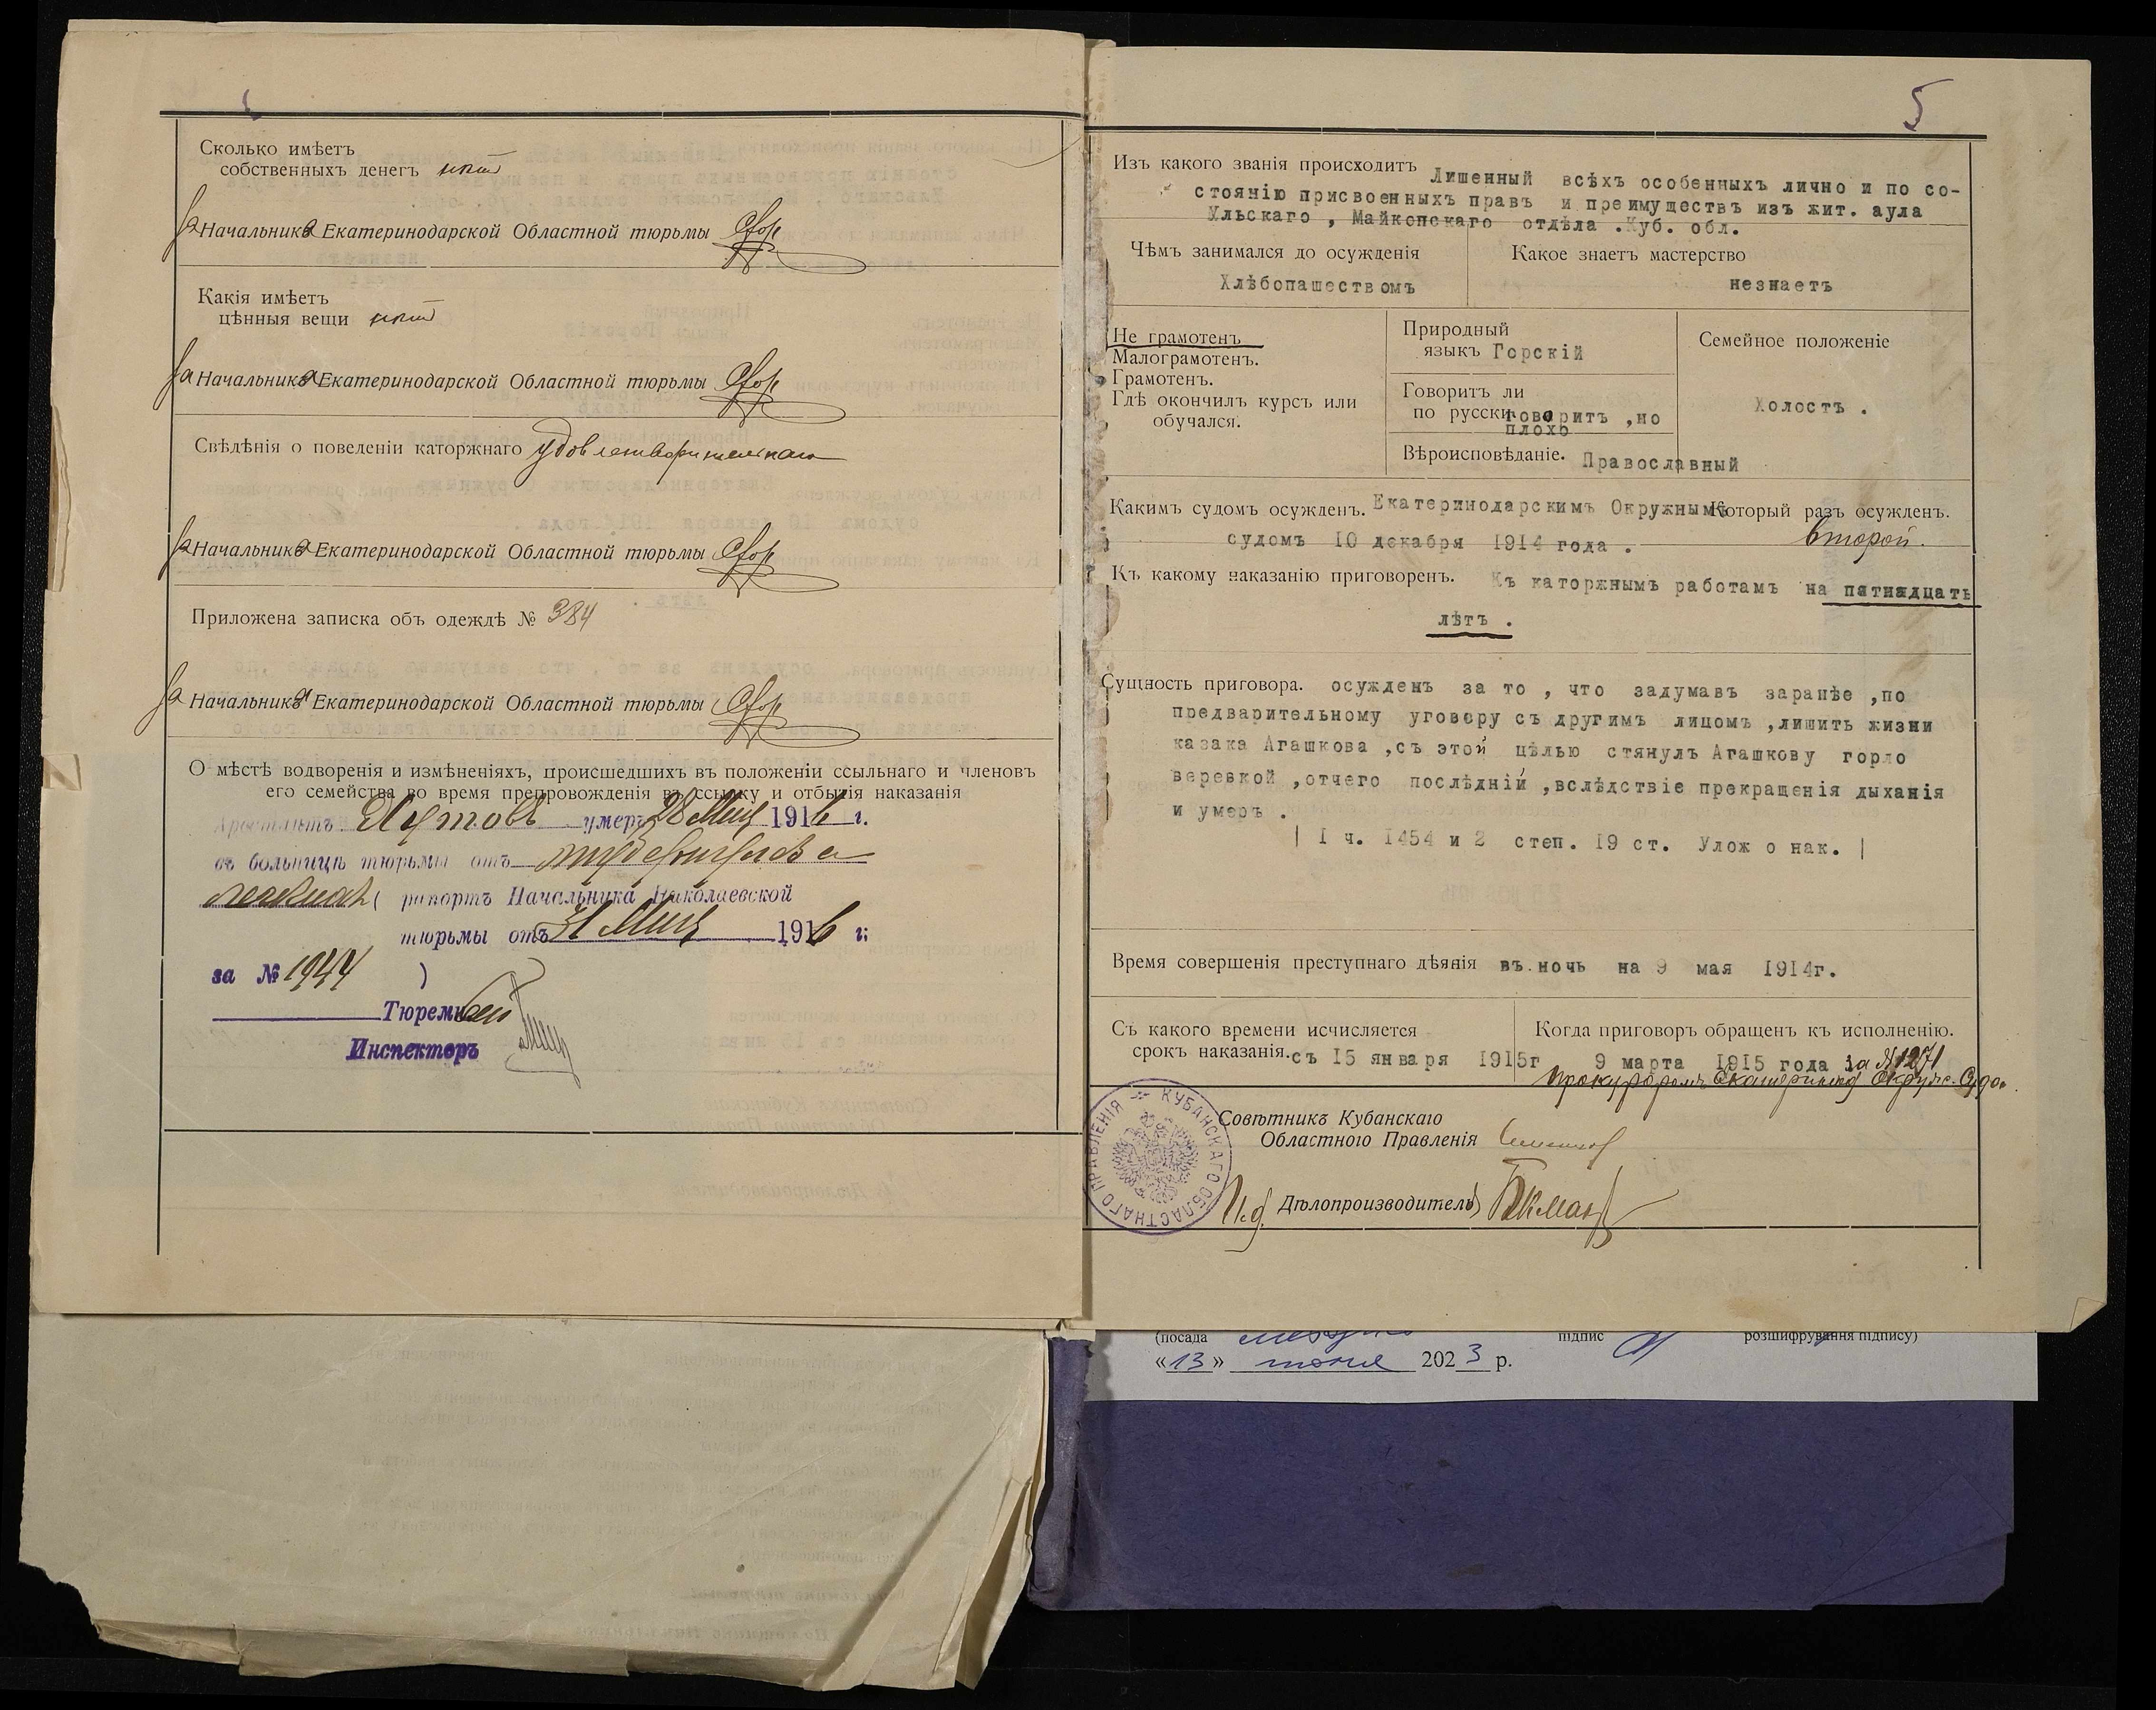 Сколько имѣетъ
собственныхъ денегъ нѣтъ
За Начальника Екатеринодарской Областной тюрьмы
Какія имѣетъ
цѣнныя вещи нѣтъ
За Начальника Екатеринодарской Областной тюрьмы
Свѣдѣнія о поведеніи каторжнаго удовлетворительнаго
За Начальника Екатеринодарской Областной тюрьмы
Приложена записка объ одеждѣ № 384
За Начальника Екатеринодарской Областной тюрьмы
О мѣстѣ водворенія и измѣненіяхъ, происшедшихъ въ положеніи ссыльнаго и членовъ
его семейства во время препровожденія въ ссылку и отбытія наказанія
Арестантъ умеръ 28 Мая 1916 г.
въ больницѣ тюрьмы отъ туберкулеза
легкихъ ( рапортъ Начальника Николаевской
тюрьмы отъ 31 Мая 1916 г.
за № 1944 )
Тюремный
Инспекторъ
5
Изъ какого званія происходитъ Лишенный всѣхъ особенныхъ лично и по со-
стоянію присвоенныхъ правъ и преимуществъ изъ жит. аула
Ульскаго , Майкопскаго отдѣла .Куб. обл.
Чѣмъ занимался до осужденія
Хлѣбопашествомъ
Какое знаетъ мастерство
незнаетъ
Не грамотенъ
Малограмотенъ.
Грамотенъ.
Гдѣ окончилъ курсъ или
обучался.
Природный
языкъ Горскій
Говоритъ ли
по русски говоритъ ,но
плохо
Вѣроисповѣданіе. Православный
Семейное положеніе
Холостъ .
Какимъ судомъ осужденъ. Екатеринодарскимъ Окружнымъ
судомъ 10 декабря 1914 года .
Который разъ осужденъ.
второй.
Къ какому наказанію приговоренъ. Къ каторжнымъ работамъ на пятнадцать
лѣтъ .
Сущность приговора. осужденъ за то , что задумавъ заранѣе ,по
предварительному уговору съ другимъ лицомъ ,лишить жизни
казака Агашкова ,съ этой цѣлью стянулъ Агашкову горло
веревкой ,отчего послѣдній ,вслѣдствіе прекращенія дыханія
и умеръ .
| I ч. 1454 и 2 степ. 19 ст. Улож о нак. |
Время совершенія преступнаго дѣянія въ ночь на 9 мая 1914г.
Съ какого времени исчисляется
срокъ наказанія. съ 15 января 1915г
Когда приговоръ обращенъ къ исполненію.
9 марта 1915 года за № 1271
Прокуроромъ Екатеринод Окружн. Суда.
КУБАНСКАГО ОБЛАСТНАГО ПРАВЛЕНІЯ
Совѣтникъ Кубанскаго
Областного Правленія
И.д. Дѣлопроизводителя
(посада підпис розшифрування підпису)
«13» июня 2023 р.